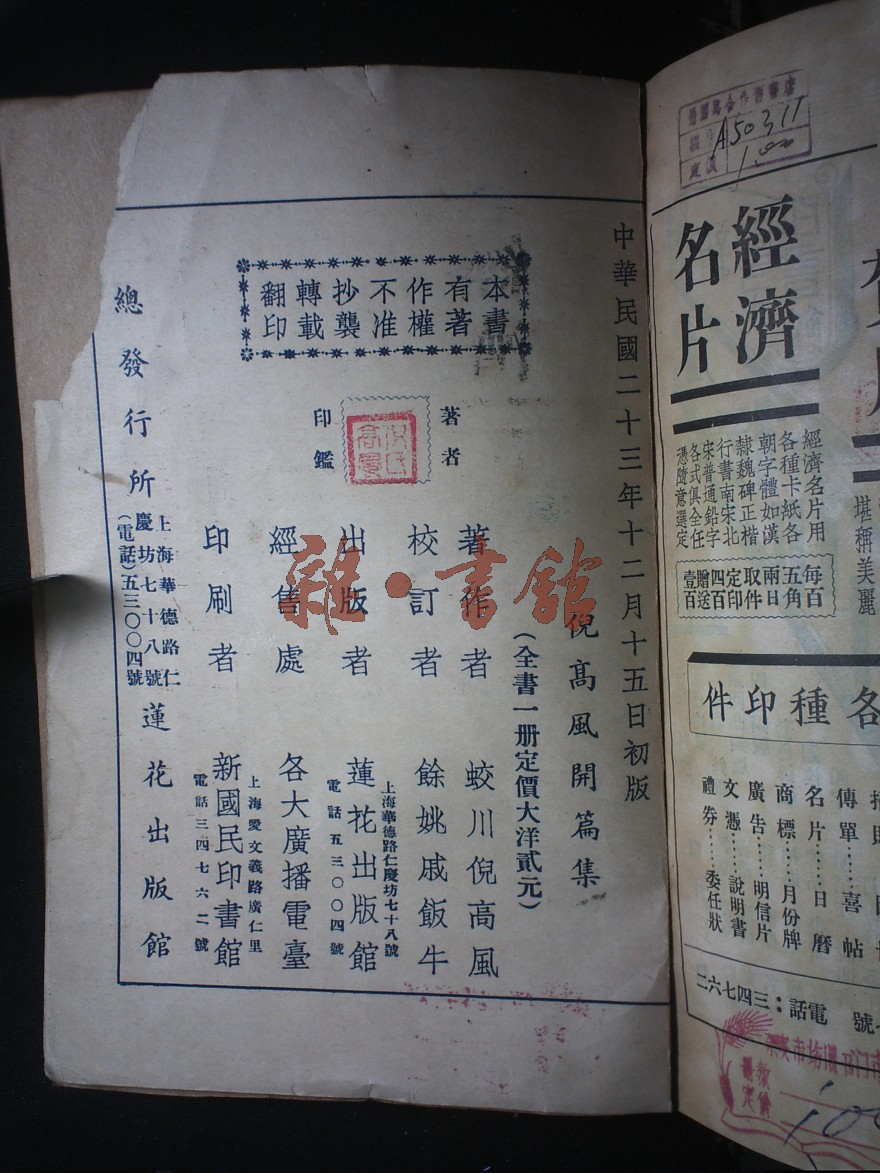 中華民國二十三年十二月十五日初版
本書
有著
作權
不准
抄襲
轉載
翻印
著者
印鑑
倪高風開篇集
（全書一册定價大洋貳元）
著作者 蛟川倪高風
校訂者 餘姚戚飯牛
出版者 蓮花出版館
上海華德路仁慶坊七十八號
電話五三〇〇四號
經售處 各大廣播電臺
印刷者 新國民印書館
上海愛文義路廣仁里
電話三四七六二號
總發行所
上海華德路仁
慶坊七十八號
（電話）五三〇〇四號
蓮花出版館
雜·書館
A50311
1.00
經濟
名片
經濟名片用
各種卡紙各
朝字體如漢
隸魏碑正楷
行書南宋北
宋普通鉛字
各式俱全任
憑隨意選定
每百
五角
兩日
取件
定印
四百
贈送
壹百
堪稱美麗
各種印件
傳單……喜帖
名片……日曆
商標……月份牌
廣告……明信片
文憑……說明書
禮券……委任狀
號 電話：三四七六二